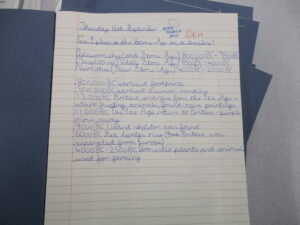 Thursday September
Can I place the Stone Age on a timeline?
Palaeolithic (Old Stone Age) 800,000BC -
Mesolithic (Middle Stone Age) - 4000BC
Neolithic (New Stone Age) 4000BC - 2000BC
800,000 BC earliest footprints
500,000BC earliest human remains
Britain emerges from the Ice Age -
start hunting animals and cave paintings
11,000BC the Ice Age returns to Britain - people
move away
9000BC Oldest skeleton was found
6000BC Sea levels rise (how Britain was
separated from Europe)
4000BC - 2500BC domestic plants and animals
used for farming